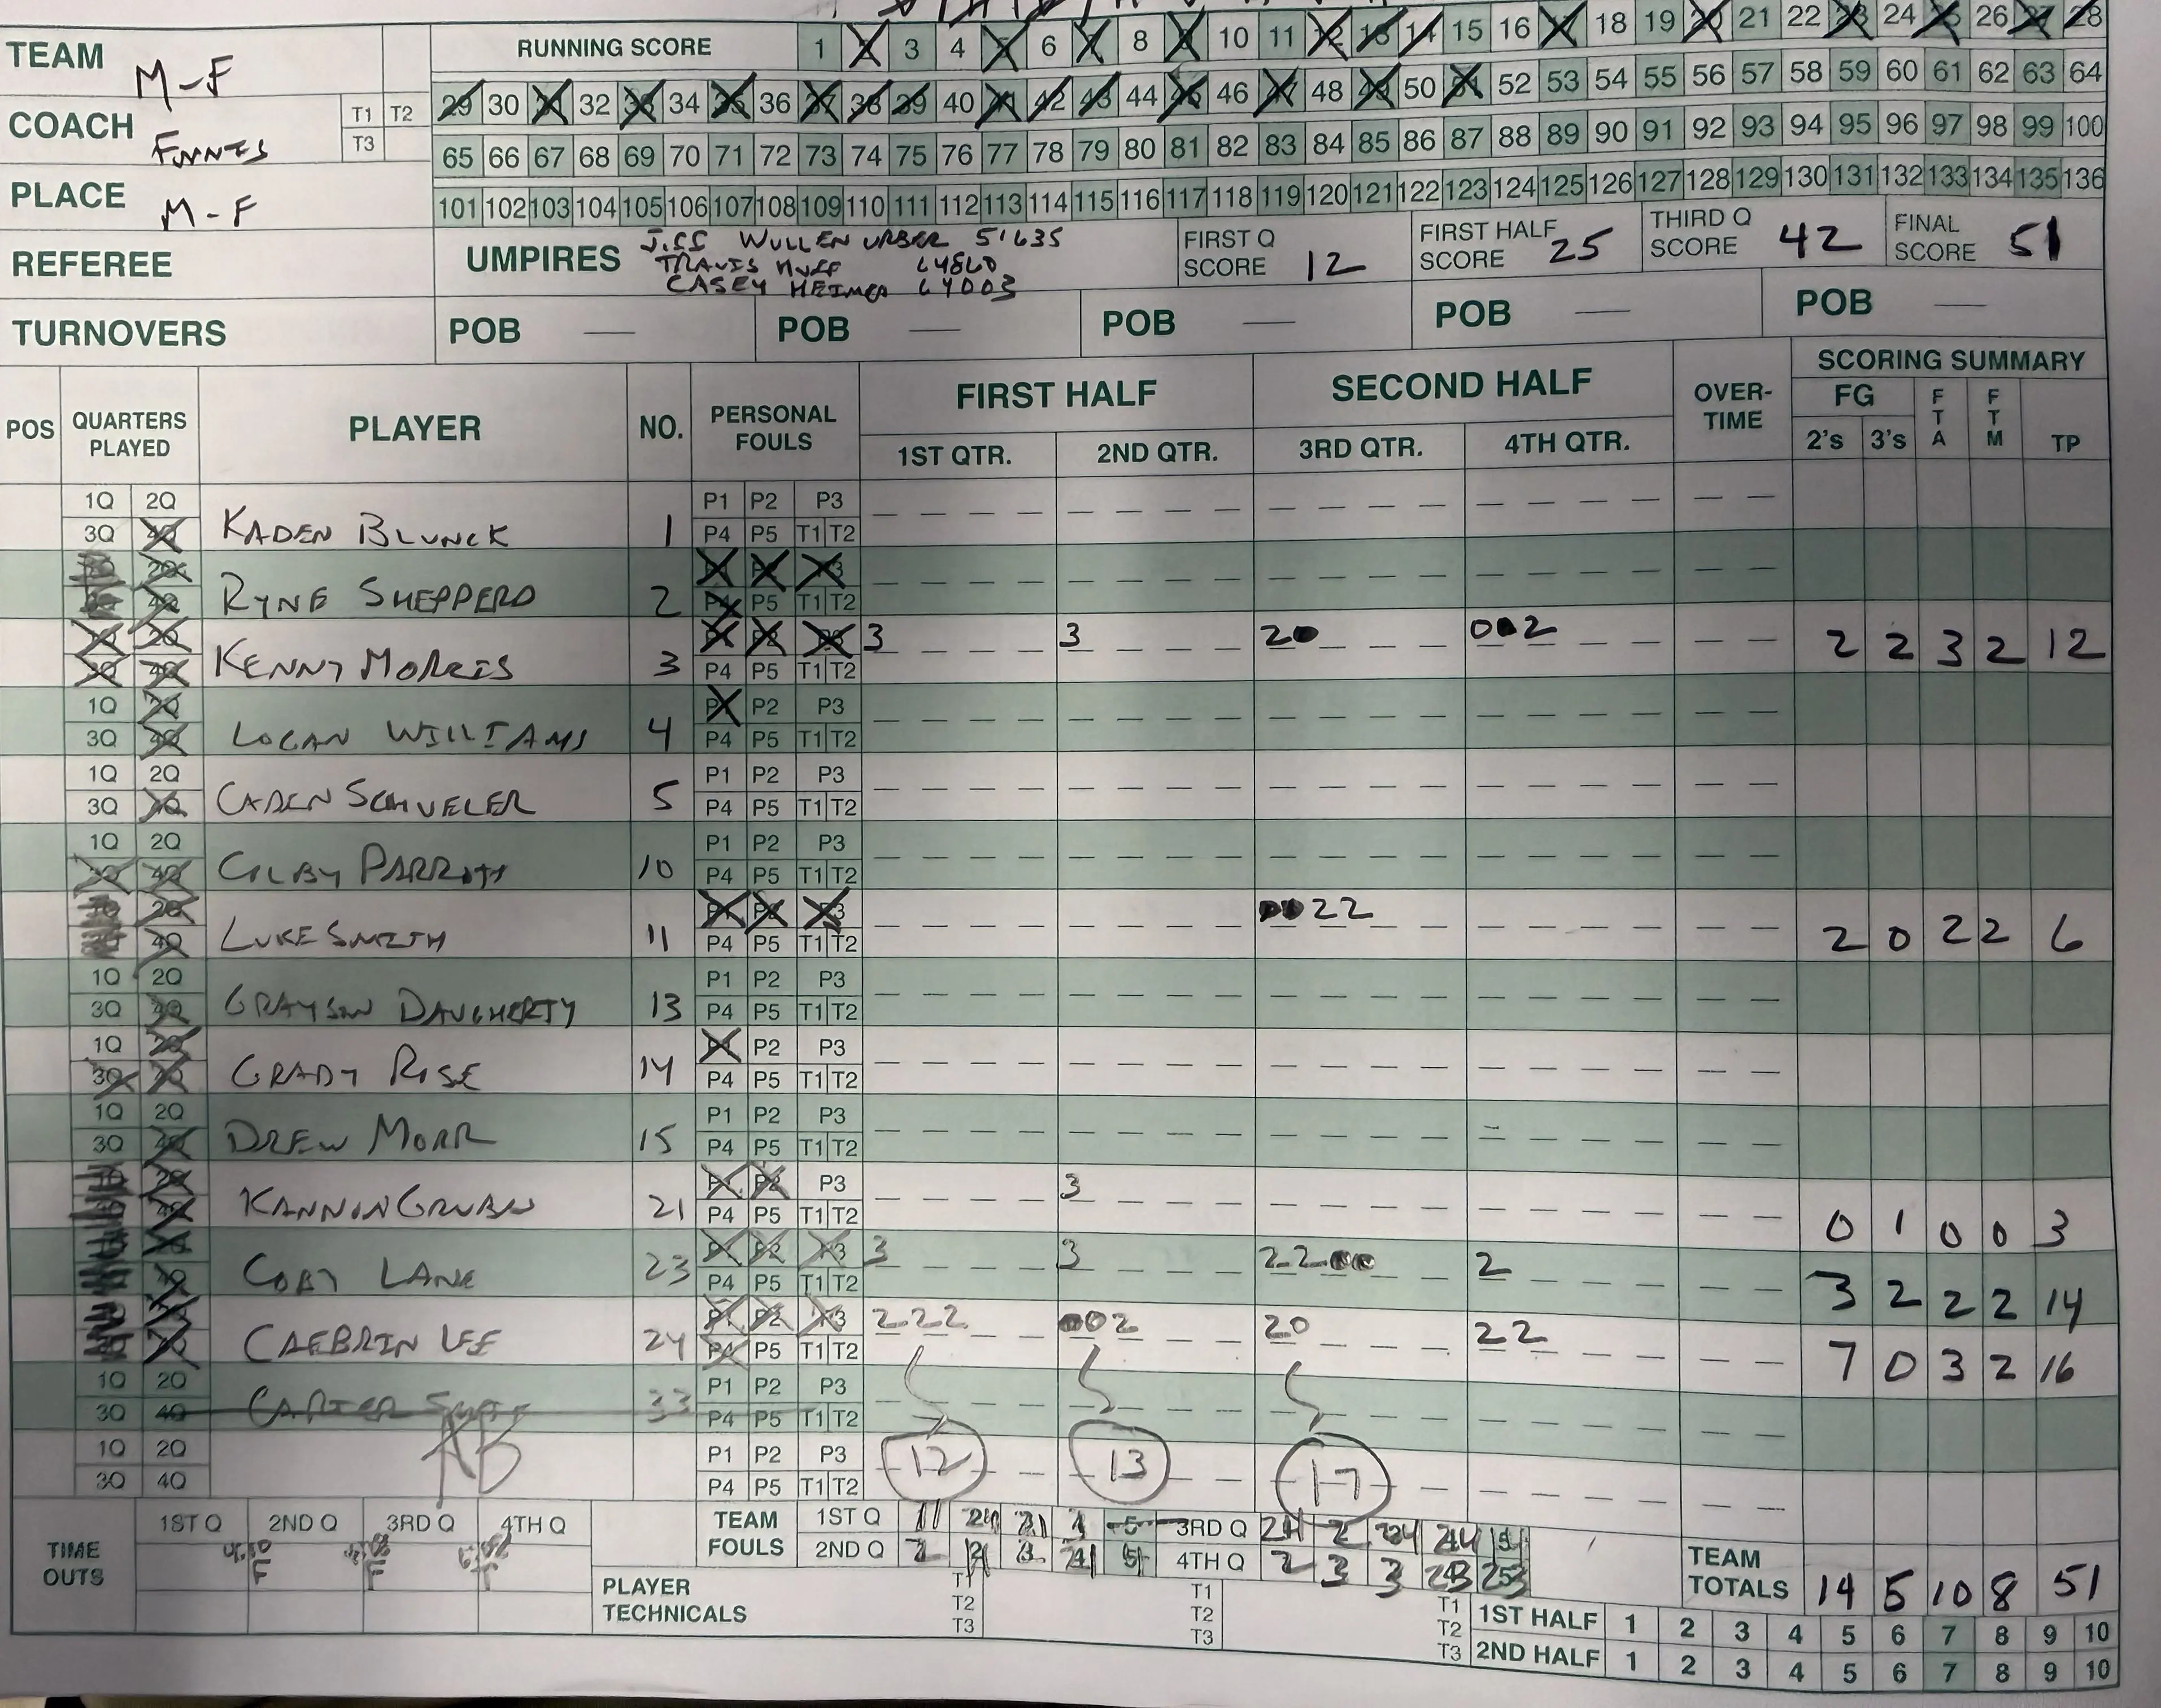 TEAM M-F RUNNING SCORE 1 2 3 4 5 6 7 8 9 10 11 12 13 14 15 16 17 18 19 20 21 22 23 24 25 26 27 28
29 30 31 32 33 34 35 36 37 38 39 40 41 42 43 44 45 46 47 48 49 50 51 52 53 54 55 56 57 58 59 60 61 62 63 64
COACH T1 T2
T3
65 66 67 68 69 70 71 72 73 74 75 76 77 78 79 80 81 82 83 84 85 86 87 88 89 90 91 92 93 94 95 96 97 98 99 100
PLACE M-F
101 102 103 104 105 106 107 108 109 110 111 112 113 114 115 116 117 118 119 120 121 122 123 124 125 126 127 128 129 130 131 132 133 134 135 136
REFEREE UMPIRES 51635
TRAVIS HUFF 64860
CASEY HEIMER 64003
FIRST Q SCORE 12
FIRST HALF SCORE 25
THIRD Q SCORE 42
FINAL SCORE 51
TURNOVERS POB — POB — POB — POB — POB —
POS QUARTERS PLAYED PLAYER NO. PERSONAL FOULS FIRST HALF SECOND HALF OVER-TIME SCORING SUMMARY
1ST QTR. 2ND QTR. 3RD QTR. 4TH QTR. FG 2's 3's FTA FTM TP
1Q 2Q P1 P2 P3
3Q 4Q KADEN BLUNCK 1 P4 P5 T1 T2
RYNE SHEPPERD 2 P5 T1 T2
KENNY MORRIS 3 P4 P5 T1 T2 3 3 20 002 2 2 3 2 12
1Q 2Q P1 P2 P3
3Q 4Q LOGAN WILLIAMS 4 P4 P5 T1 T2
1Q 2Q P1 P2 P3
3Q 4Q CADEN SCHUELER 5 P4 P5 T1 T2
1Q 2Q P1 P2 P3
3Q 4Q COLBY PARROTT 10 P4 P5 T1 T2
LUKE SMITH 11 P4 P5 T1 T2 0022 2 0 2 2 6
1Q 2Q P1 P2 P3
3Q 4Q GRAYSON DAUGHERTY 13 P4 P5 T1 T2
1Q 2Q P1 P2 P3
3Q 4Q GRADY ROSE 14 P4 P5 T1 T2
1Q 2Q P1 P2 P3
3Q 4Q DREW MORR 15 P4 P5 T1 T2
P1 P2 P3
KANNON 21 P4 P5 T1 T2 3 0 1 0 0 3
COBY LANE 23 P4 P5 T1 T2 3 3 2200 2 3 2 2 2 14
CAEBRIN LEE 24 P4 P5 T1 T2 222 002 20 22 7 0 3 2 16
1Q 2Q P1 P2 P3
3Q 4Q CARTER 33 P4 P5 T1 T2
1Q 2Q AB P1 P2 P3 12 13 17
3Q 4Q P4 P5 T1 T2
TIME OUTS 1ST Q 2ND Q 3RD Q 4TH Q
TEAM FOULS 1ST Q 3RD Q
2ND Q 4TH Q
PLAYER TECHNICALS T1 T2 T3 T1 T2 T3 T1 T2 T3
TEAM TOTALS 14 5 10 8 51
1ST HALF 1 2 3 4 5 6 7 8 9 10
2ND HALF 1 2 3 4 5 6 7 8 9 10